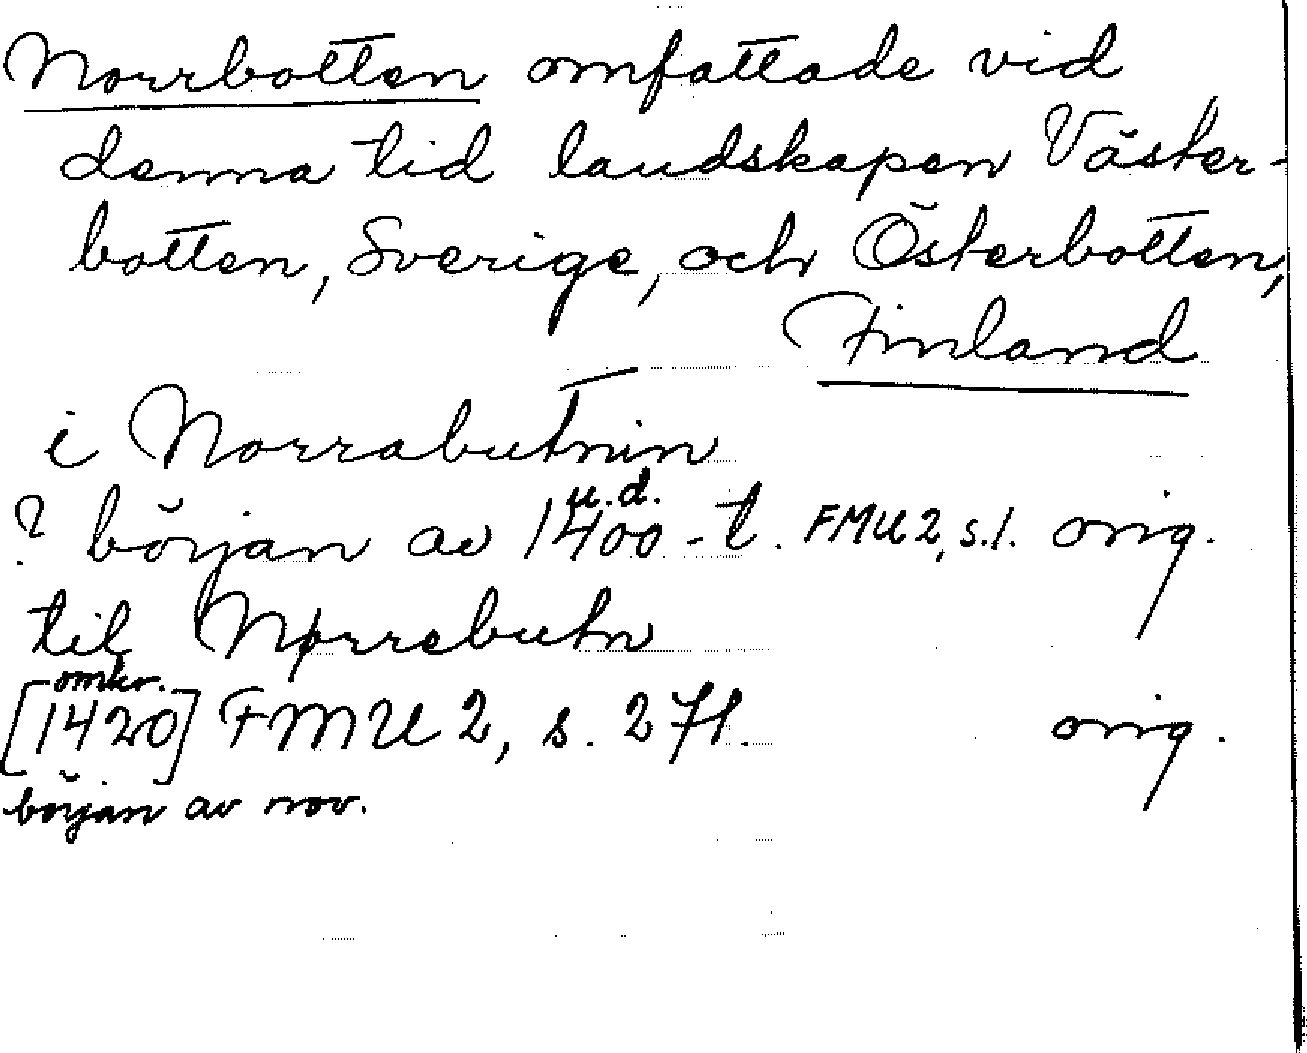 Norrbotten omfattade vid
denna tid landskapen Väster-
botten, Sverige, och Österbotten,
Finland
i Norrabutnin
u.d.
? början av 1400-t. FMU 2, s.1. orig.
til Nørrebutn
omkr.
[1420] FMU 2, s. 271. orig.
början av nov.